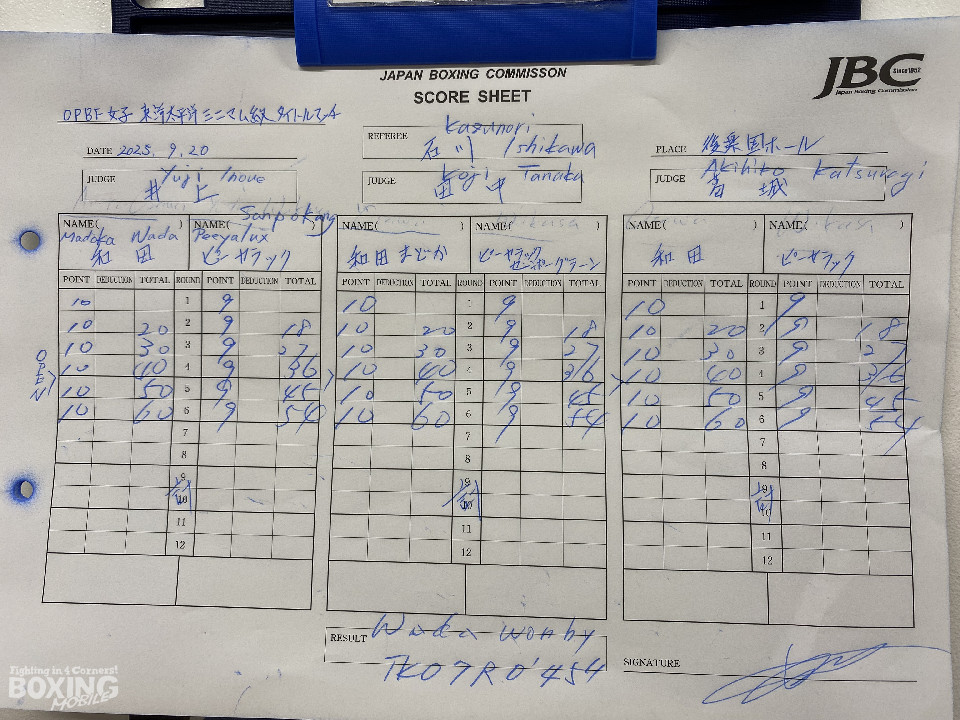 JAPAN BOXING COMMISSON
SCORE SHEET
JBC Since 1952
Japan Boxing Commission
OPBF 女子 東洋太平洋ミニマム級 タイトルマッチ
DATE 2025. 9. 20
REFEREE Kazunori Ishikawa
石川
PLACE 後楽園ホール
JUDGE Yuji Inoue
井上
JUDGE Koji Tanaka
田中
JUDGE Akihiko Katsuragi
葛城
NAME( ) NAME( ) Sanpokang
Madoka Wada Peeyalux
和田 ピーヤラック
NAME( ) NAME( )
和田まどか ピーヤラック
NAME( ) NAME( )
和田 ピーヤラック
POINT DEDUCTION TOTAL ROUND POINT DEDUCTION TOTAL POINT DEDUCTION TOTAL ROUND POINT DEDUCTION TOTAL POINT DEDUCTION TOTAL ROUND POINT DEDUCTION TOTAL
10 1 9 10 1 9 10 1 9
10 20 2 9 18 10 20 2 9 18 10 20 2 9 18
10 30 3 9 27 10 30 3 9 27 10 30 3 9 27
OPEN 10 40 4 9 36 10 40 4 9 36 10 40 4 9 36
10 50 5 9 45 10 50 5 9 45 10 50 5 9 45
10 60 6 9 54 10 60 6 9 54 10 60 6 9 54
7 7 7
8 8 8
9 9 9
10 10 10
11 11 11
12 12 12
RESULT Wada won by
TKO 7R 0'454
SIGNATURE
Fighting in 4 Corners!
BOXING
MOBILE